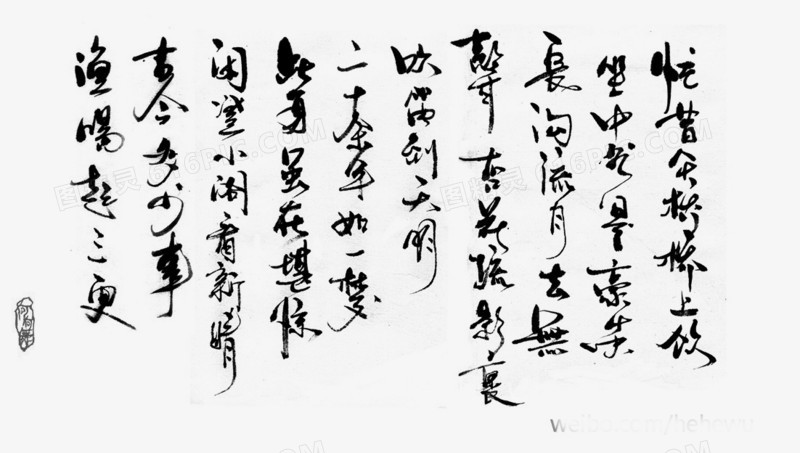 忆昔午桥桥上饮
坐中都是豪英
长沟流月去无
声杏花疏影里
吹笛到天明
二十余年如一梦
此身虽在堪惊
闲登小阁看新晴
古今多少事
渔唱起三更
weibo.com/hehewu